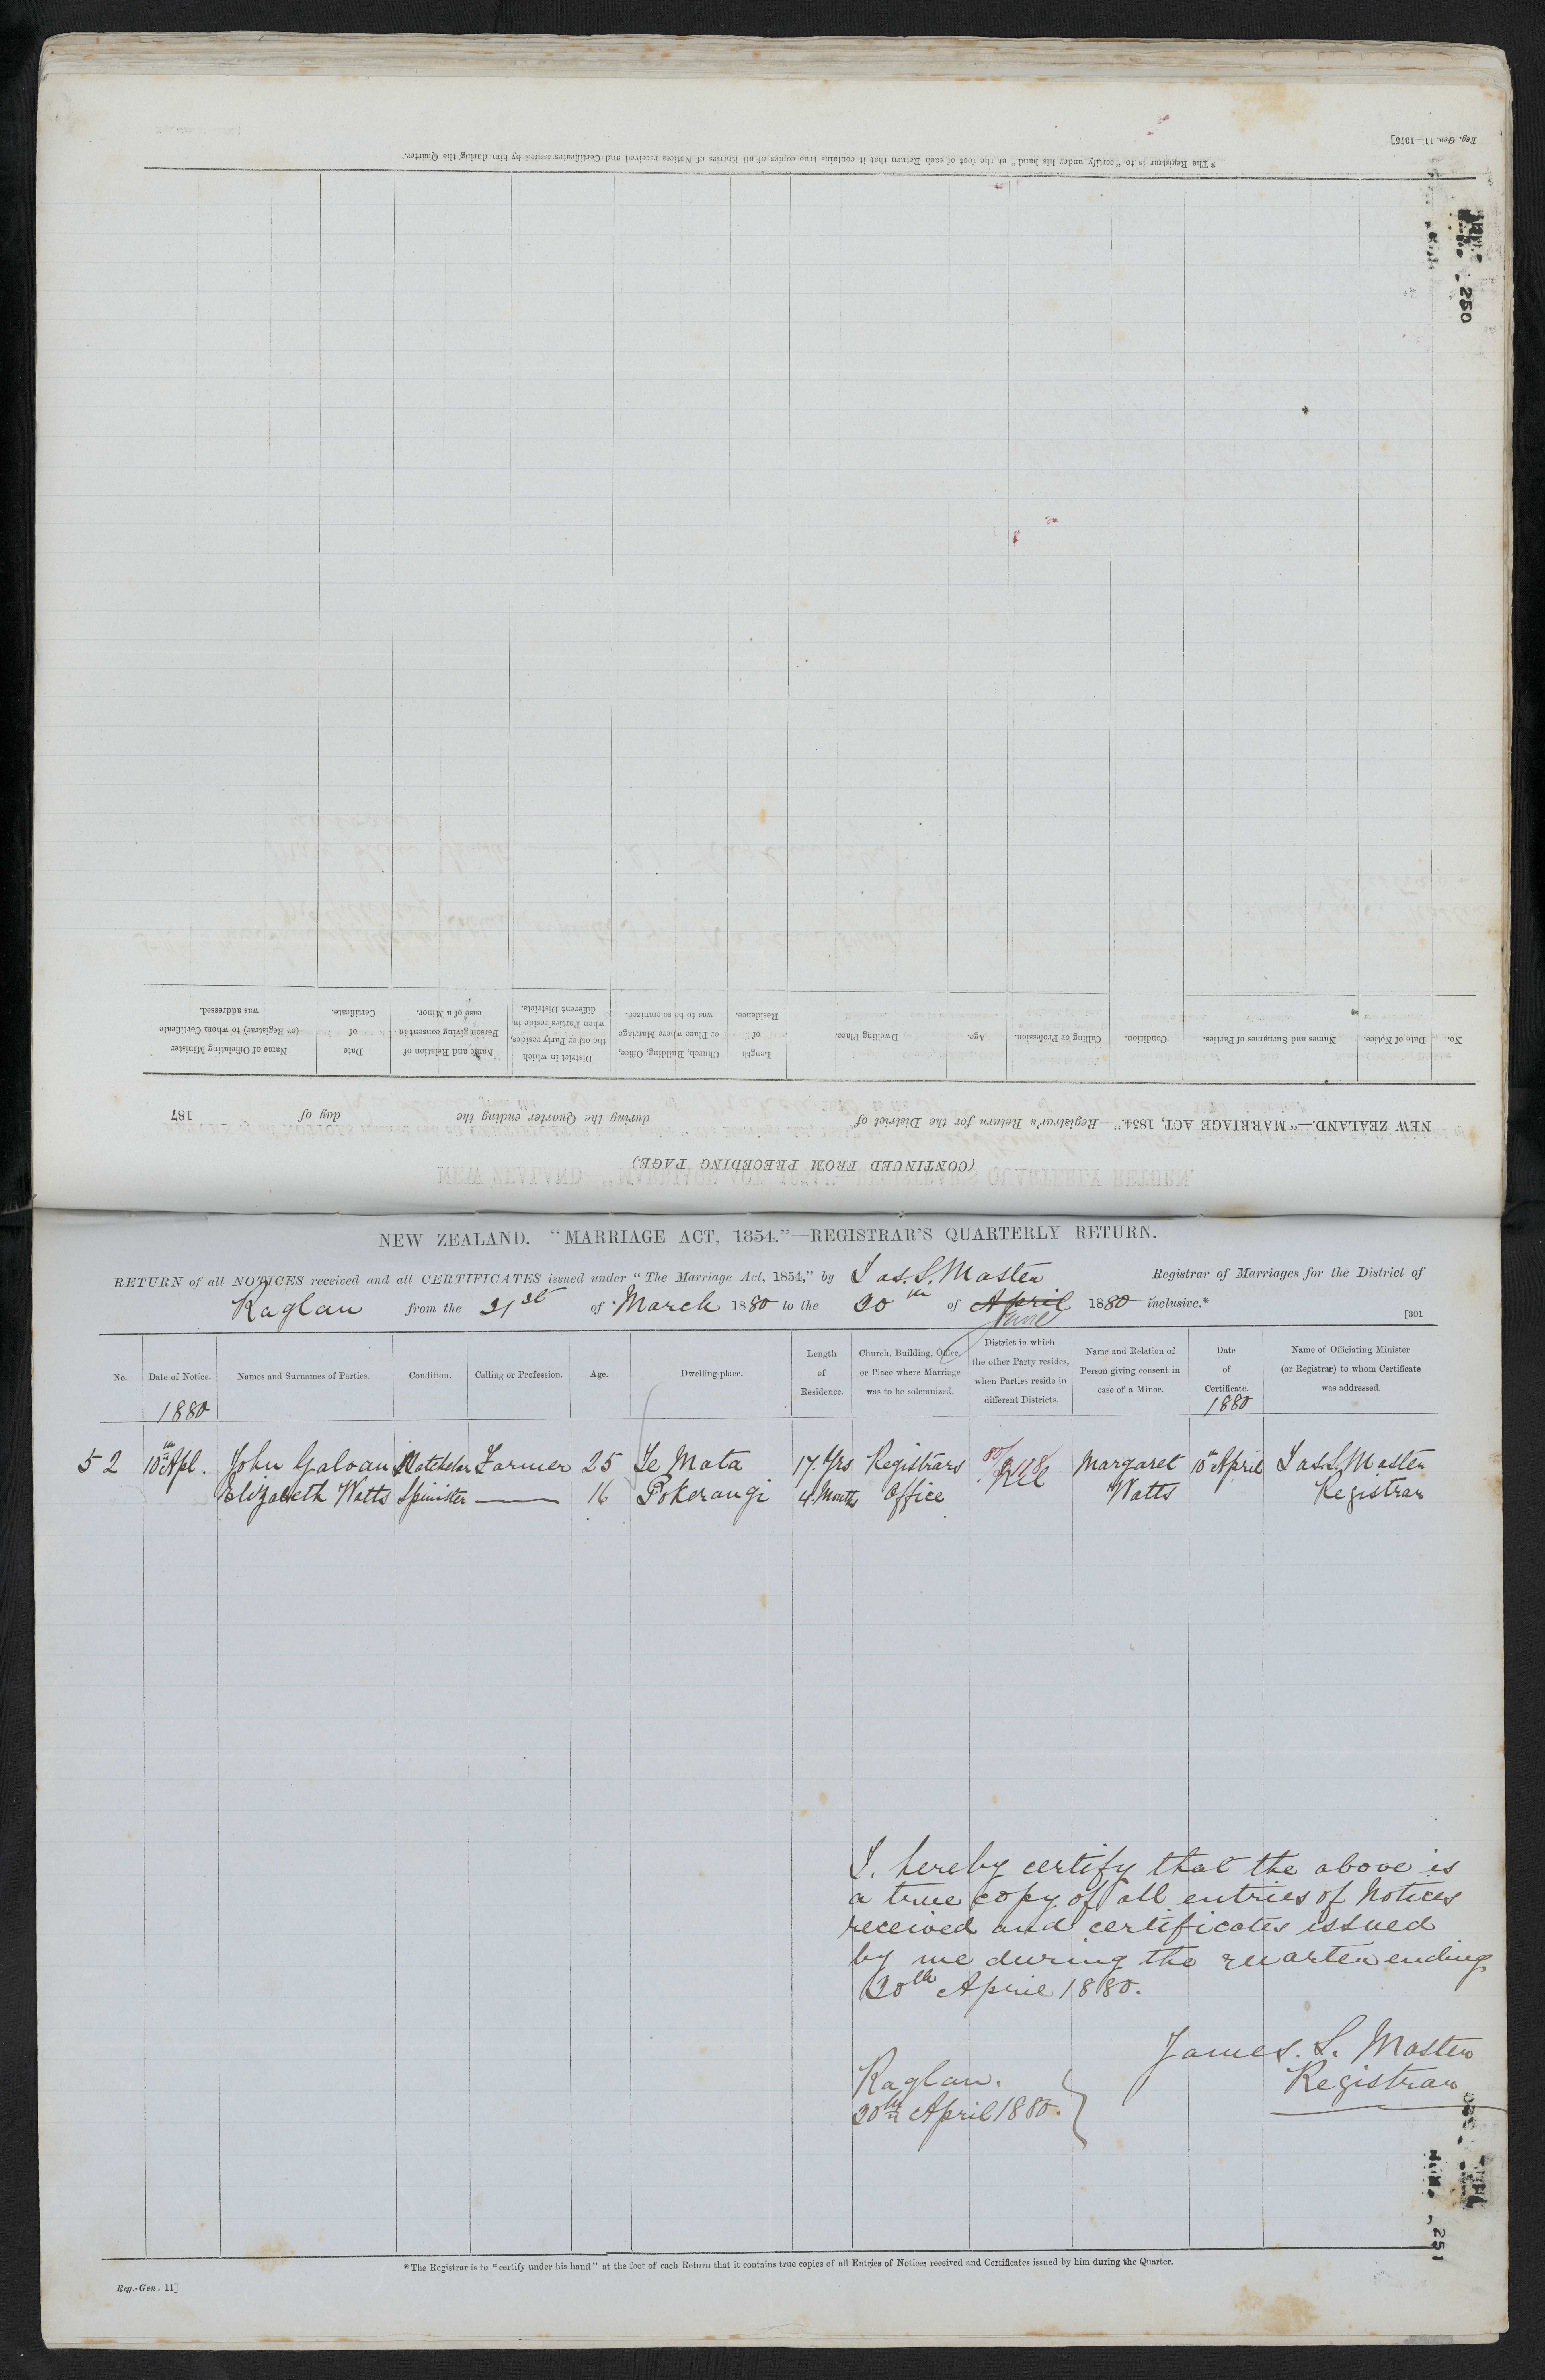 Reg. Gen. 11—1375]
* The Registrar is to "certify under his hand" at the foot of each Return that it contains true copies of all Entries of Notices received and Certificates issued by him during the Quarter.
250
No.
Date of Notice.
Names and Surnames of Parties.
Condition.
Calling or Profession.
Age.
Dwelling Place.
Length of Residence.
Church, Building, Office, or Place where Marriage was to be solemnized.
District in which the other Party resides, when Parties reside in different Districts.
Name and Relation of Person giving consent in case of a Minor.
Date of Certificate.
Name of Officiating Minister (or Registrar) to whom Certificate was addressed.
NEW ZEALAND.—"MARRIAGE ACT, 1854."—Registrar's Return for the District of during the Quarter ending the day of 187
(CONTINUED FROM PRECEDING PAGE.)
NEW ZEALAND.—"MARRIAGE ACT, 1854."—REGISTRAR'S QUARTERLY RETURN.
RETURN of all NOTICES received and all CERTIFICATES issued under "The Marriage Act, 1854," by Jas. S. Master Registrar of Marriages for the District of
Raglan from the 31st of March 1880 to the 30th of April 1880 inclusive.*
June
[301
No.
Date of Notice.
Names and Surnames of Parties.
Condition.
Calling or Profession.
Age.
Dwelling-place.
Length of Residence.
Church, Building, Office, or Place where Marriage was to be solemnized.
District in which the other Party resides, when Parties reside in different Districts.
Name and Relation of Person giving consent in case of a Minor.
Date of Certificate.
Name of Officiating Minister (or Registrar) to whom Certificate was addressed.
1880 1880
52 10th Apl. John Galvan Batchelor Farmer 25 Te Mata 17. Yrs Registrars Margaret 10th April Jas. S. Master
Elizabeth Watts Spinster — 16 Pokerangi 4. Months Office Watts Registrar
I. hereby certify that the above is
a true copy of all entries of Notices
received and certificates issued
by me during the quarter ending
30th April 1880.
James. S. Master
Registrar
Raglan.
30th April 1880.
251
* The Registrar is to "certify under his hand" at the foot of each Return that it contains true copies of all Entries of Notices received and Certificates issued by him during the Quarter.
Reg.-Gen. 11]